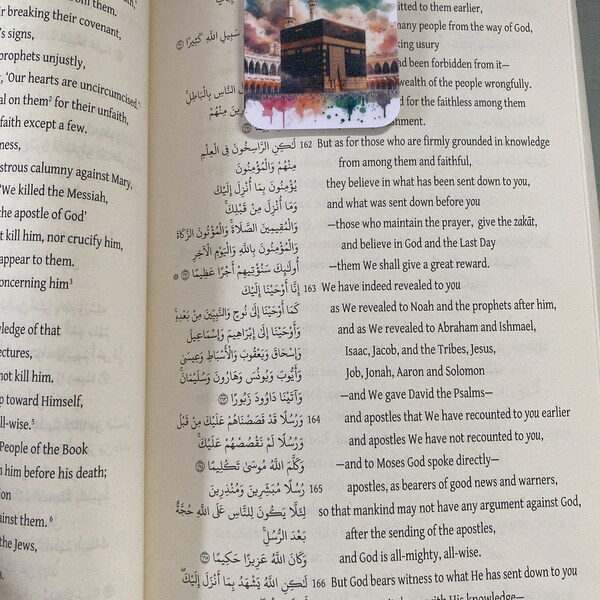 from them.
breaking their covenant,
's signs,
prophets unjustly,
'Our hearts are uncircumcised.'
on them² for their unfaith,
faith except a few.
strous calumny against Mary,
'We killed the Messiah,
the apostle of God'
kill him, nor crucify him,
appear to them.
concerning him³
ledge of that
ectures,
not kill him.
up toward Himself,
all-wise.⁵
People of the Book
him before his death;
against them. ⁶
the Jews,
committed to them earlier,
many people from the way of God,
usury
been forbidden from it—
wealth of the people wrongfully.
for the faithless among them
سَبِيلِ اللَّهِ كَثِيرًا
النَّاسِ بِالْبَاطِلِ
مِنْهُمْ
لَٰكِنِ الرَّاسِخُونَ فِي الْعِلْمِ 162 But as for those who are firmly grounded in knowledge
مِنْهُمْ وَالْمُؤْمِنُونَ from among them and faithful,
يُؤْمِنُونَ بِمَا أُنْزِلَ إِلَيْكَ they believe in what has been sent down to you,
وَمَا أُنْزِلَ مِنْ قَبْلِكَ and what was sent down before you
وَالْمُقِيمِينَ الصَّلَاةَ وَالْمُؤْتُونَ الزَّكَاةَ —those who maintain the prayer, give the zakāt,
وَالْمُؤْمِنُونَ بِاللَّهِ وَالْيَوْمِ الْآخِرِ and believe in God and the Last Day
أُولَٰئِكَ سَنُؤْتِيهِمْ أَجْرًا عَظِيمًا ﴿١٦٢﴾ —them We shall give a great reward.
إِنَّا أَوْحَيْنَا إِلَيْكَ 163 We have indeed revealed to you
كَمَا أَوْحَيْنَا إِلَىٰ نُوحٍ وَالنَّبِيِّينَ مِنْ بَعْدِهِ as We revealed to Noah and the prophets after him,
وَأَوْحَيْنَا إِلَىٰ إِبْرَاهِيمَ وَإِسْمَاعِيلَ and as We revealed to Abraham and Ishmael,
وَإِسْحَاقَ وَيَعْقُوبَ وَالْأَسْبَاطِ وَعِيسَىٰ Isaac, Jacob, and the Tribes, Jesus,
وَأَيُّوبَ وَيُونُسَ وَهَارُونَ وَسُلَيْمَانَ Job, Jonah, Aaron and Solomon
وَآتَيْنَا دَاوُودَ زَبُورًا ﴿١٦٣﴾ —and We gave David the Psalms—
وَرُسُلًا قَدْ قَصَصْنَاهُمْ عَلَيْكَ مِنْ قَبْلُ 164 and apostles that We have recounted to you earlier
وَرُسُلًا لَمْ نَقْصُصْهُمْ عَلَيْكَ and apostles We have not recounted to you,
وَكَلَّمَ اللَّهُ مُوسَىٰ تَكْلِيمًا ﴿١٦٤﴾ —and to Moses God spoke directly—
رُسُلًا مُبَشِّرِينَ وَمُنْذِرِينَ 165 apostles, as bearers of good news and warners,
لِئَلَّا يَكُونَ لِلنَّاسِ عَلَى اللَّهِ حُجَّةٌ so that mankind may not have any argument against God,
بَعْدَ الرُّسُلِ after the sending of the apostles,
وَكَانَ اللَّهُ عَزِيزًا حَكِيمًا ﴿١٦٥﴾ and God is all-mighty, all-wise.
لَٰكِنِ اللَّهُ يَشْهَدُ بِمَا أَنْزَلَ إِلَيْكَ 166 But God bears witness to what He has sent down to you
with His knowledge—